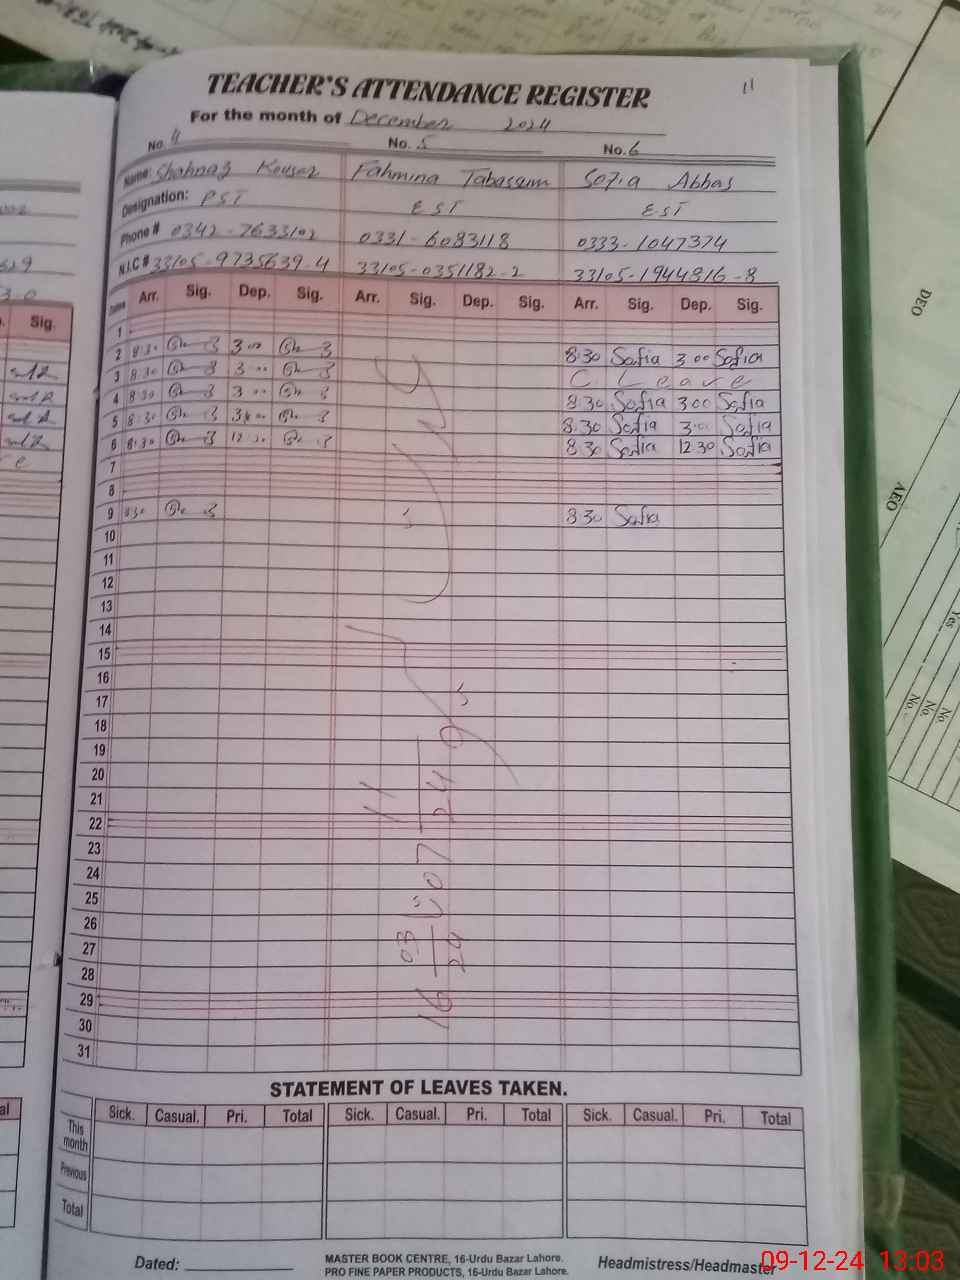 TEACHER'S ATTENDANCE REGISTER
11
For the month of December 2024
No. 4 No. 5 No. 6
Name: Shahnaz Kousar Fahmina Tabassum Sofia Abbas
Designation: PST EST EST
Phone # 0342-7633102 0331-6083118 0333-1047374
N.I.C # 33105-9735639-4 33105-0351182-2 33105-1944816-8
Arr. Sig. Dep. Sig. Arr. Sig. Dep. Sig. Arr. Sig. Dep. Sig.
1
2 8:30 3 00 8:30 Sofia 3 00 Sofia
3 8:30 3 00 C Leave
4 8:30 3 00 8:30 Sofia 3 00 Sofia
5 8:30 3 00 8:30 Sofia 3 00 Sofia
6 8:30 12 30 8:30 Sofia 12 30 Sofia
7
8
9 8:30 8 30 Sofia
10
11
12
13
14
15
16
17
18
19
20
21
22
23
24
25
26
27
28
29
30
31
STATEMENT OF LEAVES TAKEN.
Sick. Casual. Pri. Total Sick. Casual. Pri. Total Sick. Casual. Pri. Total
This month
Previous
Total
Dated:
MASTER BOOK CENTRE, 16-Urdu Bazar Lahore.
PRO FINE PAPER PRODUCTS, 16-Urdu Bazar Lahore.
Headmistress/Headmaster
09-12-24 13:03
Sig.
DEO
AEO
Yes
No.
No.
No